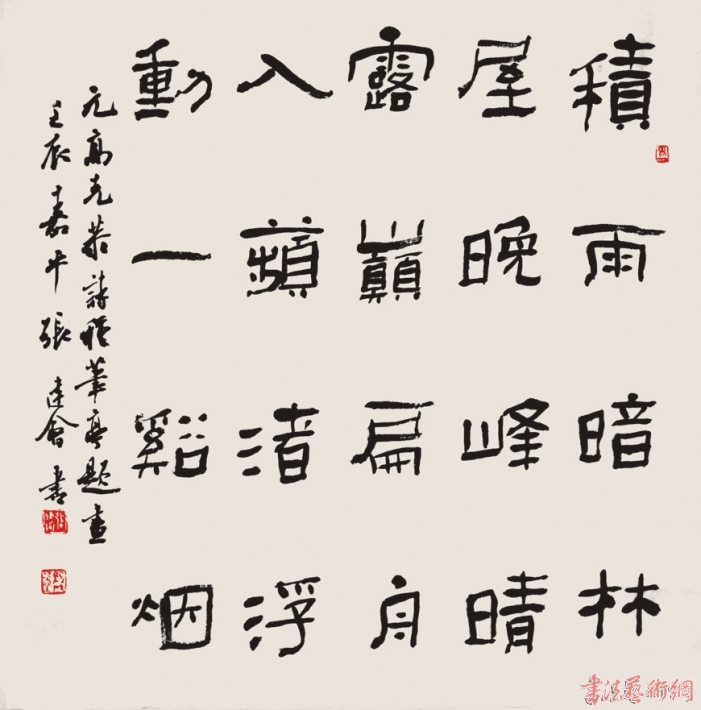 積雨暗林
屋晚峰晴
露巔扁舟
入蘋渚浮
動一谿烟
元高克恭詩種筆亭題畫
壬辰嘉平張會書
書法藝術網